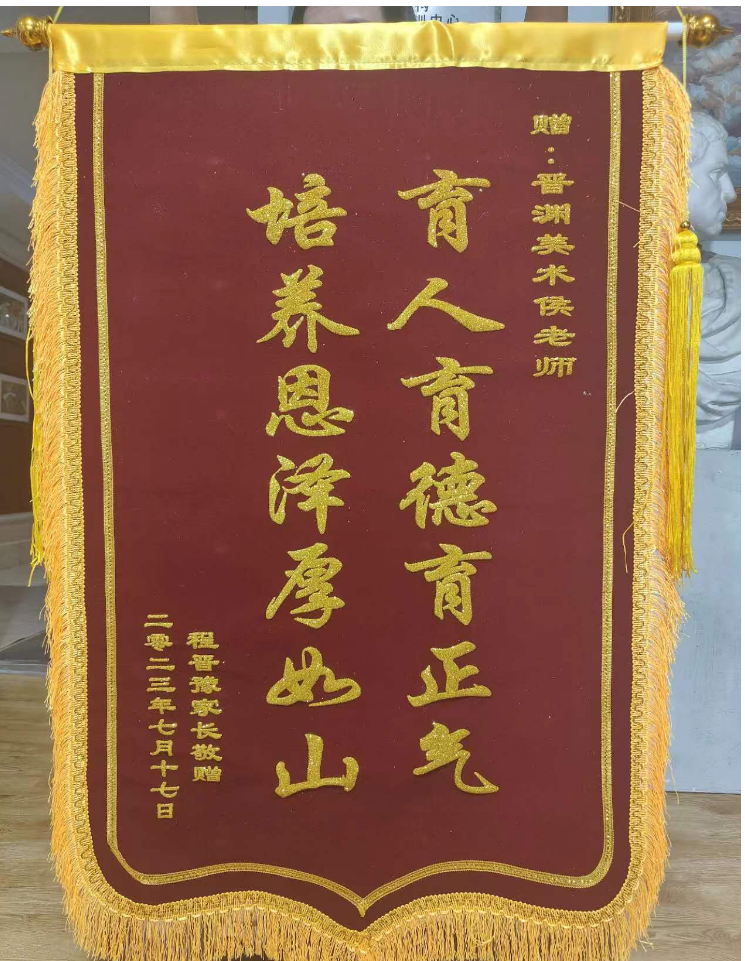 赠：晋渊美术侯老师
育人育德育正气
培养恩泽厚如山
程晋豫家长敬赠
二零二三年七月十七日